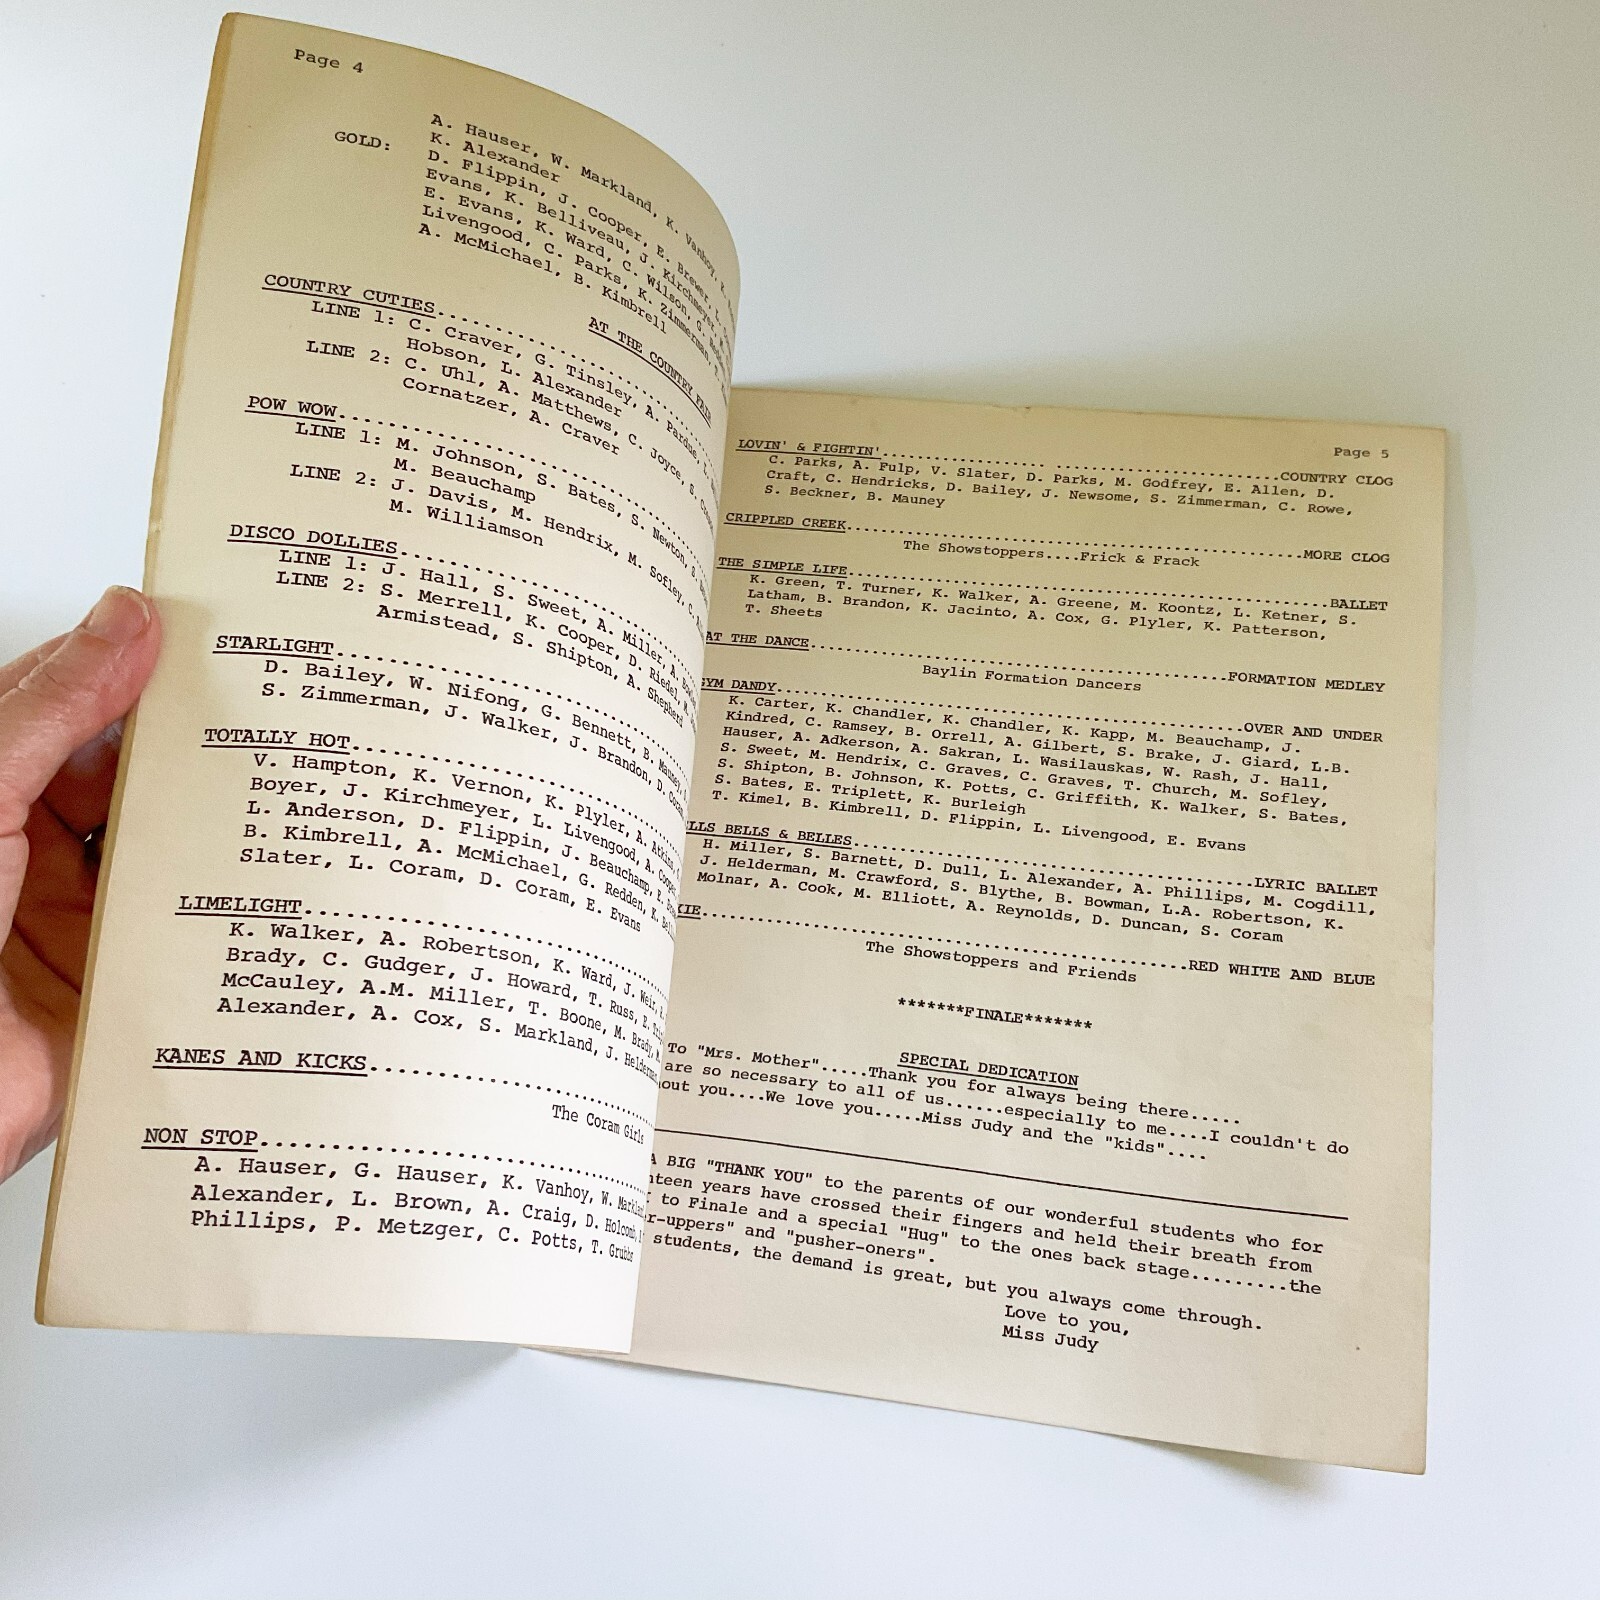 Page 4
A. Hauser, W. Markland, K. Vanhoy, K.
K. Alexander
GOLD: D. Flippin, J. Cooper, E. Brewer, L.
Evans, K. Belliveau, J. Kirchmeyer, M.
E. Evans, K. Ward, C. Wilson, G.
Livengood, C. Parks, K. Zimmerman, T.
A. McMichael, B. Kimbrell
COUNTRY CUTIES..............................AT THE COUNTRY FAIR
LINE 1: C. Craver, G. Tinsley, A. Pardue, L.
Hobson, L. Alexander
LINE 2: C. Uhl, A. Matthews, C. Joyce, S.
Cornatzer, A. Craver
POW WOW..............................
LINE 1: M. Johnson, S. Bates, S. Newton, S.
M. Beauchamp
LINE 2: J. Davis, M. Hendrix, M. Sofley, C.
M. Williamson
DISCO DOLLIES..............................
LINE 1: J. Hall, S. Sweet, A. Miller, A.
LINE 2: S. Merrell, K. Cooper, D. Riedel, M.
Armistead, S. Shipton, A. Shepherd
STARLIGHT..............................
D. Bailey, W. Nifong, G. Bennett, B. Mauney,
S. Zimmerman, J. Walker, J. Brandon, D. Coram
TOTALLY HOT..............................
V. Hampton, K. Vernon, K. Plyler, A. Atkins,
Boyer, J. Kirchmeyer, L. Livengood, A. Cooper,
L. Anderson, D. Flippin, J. Beauchamp, E.
B. Kimbrell, A. McMichael, G. Redden, K.
Slater, L. Coram, D. Coram, E. Evans
LIMELIGHT..............................
K. Walker, A. Robertson, K. Ward, J. Weir,
Brady, C. Gudger, J. Howard, T. Russ, E.
McCauley, A.M. Miller, T. Boone, M. Brady,
Alexander, A. Cox, S. Markland, J. Helderman
KANES AND KICKS..............................
The Coram Girls
NON STOP..............................
A. Hauser, G. Hauser, K. Vanhoy, W. Markland
Alexander, L. Brown, A. Craig, D. Holcomb,
Phillips, P. Metzger, C. Potts, T. Grubbs
Page 5
LOVIN' & FIGHTIN'..............................COUNTRY CLOG
C. Parks, A. Fulp, V. Slater, D. Parks, M. Godfrey, E. Allen, D.
Craft, C. Hendricks, D. Bailey, J. Newsome, S. Zimmerman, C. Rowe,
S. Beckner, B. Mauney
CRIPPLED CREEK..............................MORE CLOG
The Showstoppers....Frick & Frack
THE SIMPLE LIFE..............................BALLET
K. Green, T. Turner, K. Walker, A. Greene, M. Koontz, L. Ketner, S.
Latham, B. Brandon, K. Jacinto, A. Cox, G. Plyler, K. Patterson,
T. Sheets
AT THE DANCE..............................FORMATION MEDLEY
Baylin Formation Dancers
GYM DANDY..............................OVER AND UNDER
K. Carter, K. Chandler, K. Chandler, K. Kapp, M. Beauchamp, J.
Kindred, C. Ramsey, B. Orrell, A. Gilbert, S. Brake, J. Giard, L.B.
Hauser, A. Adkerson, A. Sakran, L. Wasilauskas, W. Rash, J. Hall,
S. Sweet, M. Hendrix, C. Graves, C. Graves, T. Church, M. Sofley,
S. Shipton, B. Johnson, K. Potts, C. Griffith, K. Walker, S. Bates,
S. Bates, E. Triplett, K. Burleigh
T. Kimel, B. Kimbrell, D. Flippin, L. Livengood, E. Evans
LLS BELLS & BELLES..............................LYRIC BALLET
H. Miller, S. Barnett, D. Dull, L. Alexander, A. Phillips, M. Cogdill,
J. Helderman, M. Crawford, S. Blythe, B. Bowman, L.A. Robertson, K.
Molnar, A. Cook, M. Elliott, A. Reynolds, D. Duncan, S. Coram
XIE..............................RED WHITE AND BLUE
The Showstoppers and Friends
*******FINALE*******
SPECIAL DEDICATION
To "Mrs. Mother".....Thank you for always being there.....
are so necessary to all of us......especially to me....I couldn't do
out you....We love you.....Miss Judy and the "kids"....
A BIG "THANK YOU" to the parents of our wonderful students who for
nteen years have crossed their fingers and held their breath from
to Finale and a special "Hug" to the ones back stage.........the
r-uppers" and "pusher-oners".
students, the demand is great, but you always come through.
Love to you,
Miss Judy